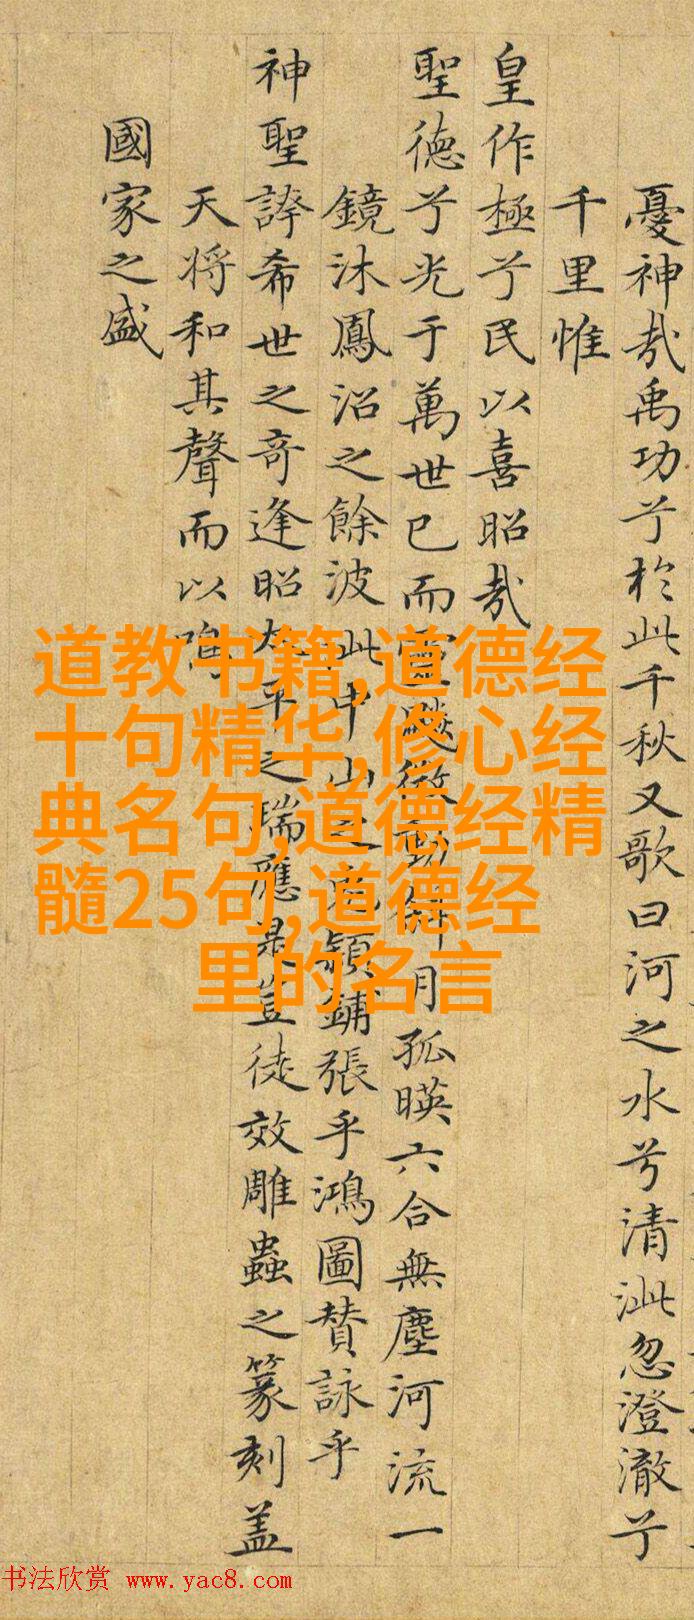 憂神哉禹功兮於此千秋又歌曰河之水兮清泚忽澄澈兮
千里惟
皇作極兮民以喜昭哉
聖德兮光于萬世已而靈飇微動斜月孤暎六合無塵河流一
鏡沐鳳沼之餘波此中山之兔穎鋪張乎鴻圖賛詠乎
神聖誇希世之奇逢昭太平之瑞應是豈徒效雕蟲之篆刻盖
天将和其聲而以鳴
國家之盛
道教书籍,道德经
十句精华,修心经
典名句,道德经精
髓25句,道德经
里的名言
书法欣赏 www.yac8.com